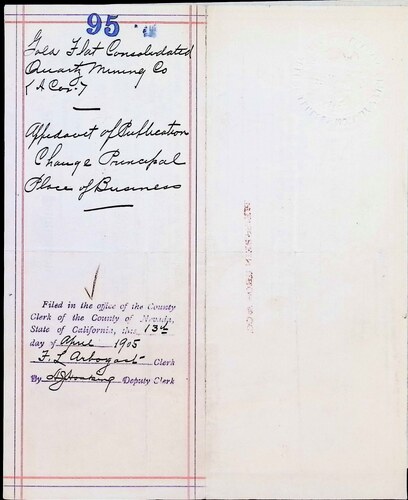 95
Gold Flat Consolidated
Quartz Mining Co
(A Cor.)
Affidavit of Publication
Change Principal
Place of Business
Filed in the office of the County
Clerk of the County of Nevada,
State of California, this 13th
day of April 1905
F. L. Arbogast Clerk
By Deputy Clerk